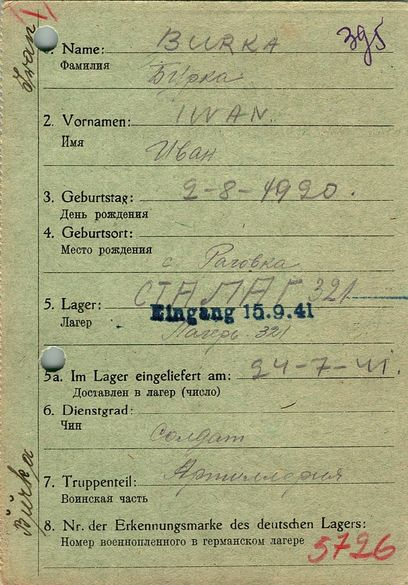 Iwan
395
1. Name: BURKA
Фамилия
Бурка
2. Vornamen: IWAN.
Имя
Иван
3. Geburtstag: 2-8-1920.
День рождения
4. Geburtsort:
Место рождения
с. Раговка
СТАЛАГ 321
5. Lager: Eingang 15.9.41
Лагер Лагерь 321
5a. Im Lager eingeliefert am: 24-7-41.
Доставлен в лагер (число)
6. Dienstgrad:
Чин
Солдат
7. Truppenteil: Артиллерия
Воинская часть
Bŭrka
8. Nr. der Erkennungsmarke des deutschen Lagers:
Номер военнопленного в германском лагере 5726